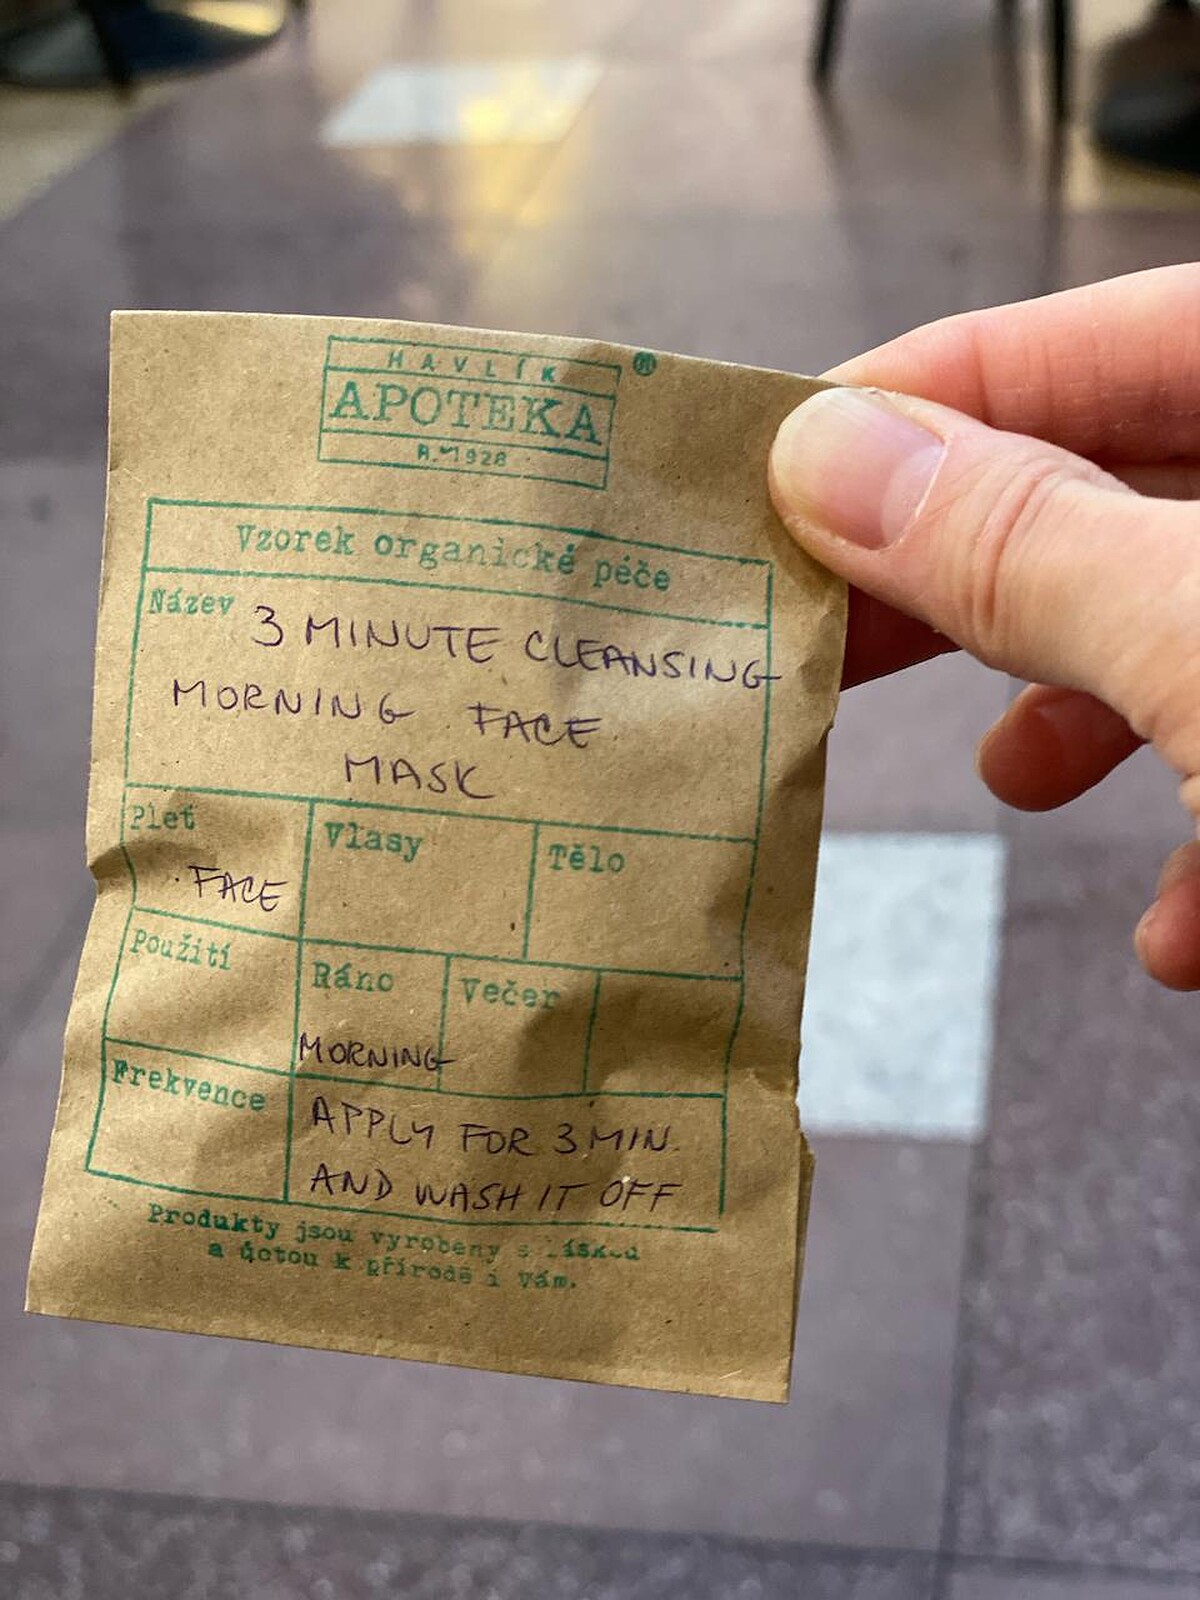 HAVLÍK
APOTEKA
R. 1928
®
Vzorek organické péče
Název 3 MINUTE CLEANSING
MORNING FACE
MASK
Pleť Vlasy Tělo
FACE
Použití Ráno Večer
MORNING
Frekvence APPLY FOR 3 MIN.
AND WASH IT OFF
Produkty jsou vyrobeny s láskou
a úctou k přírodě i Vám.